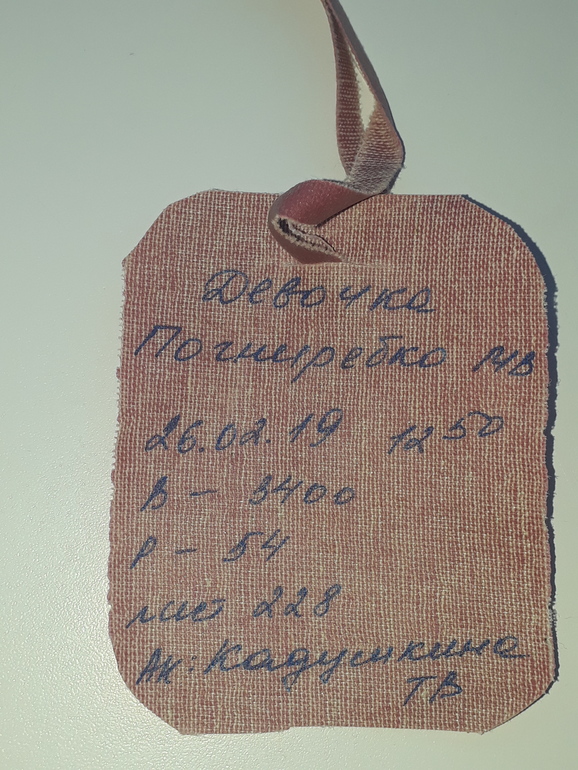 Девочка
Погниребко МВ
26.02.19 12 50
В - 3400
Р - 54
лист 228
АК: Кадушкина
ТВ